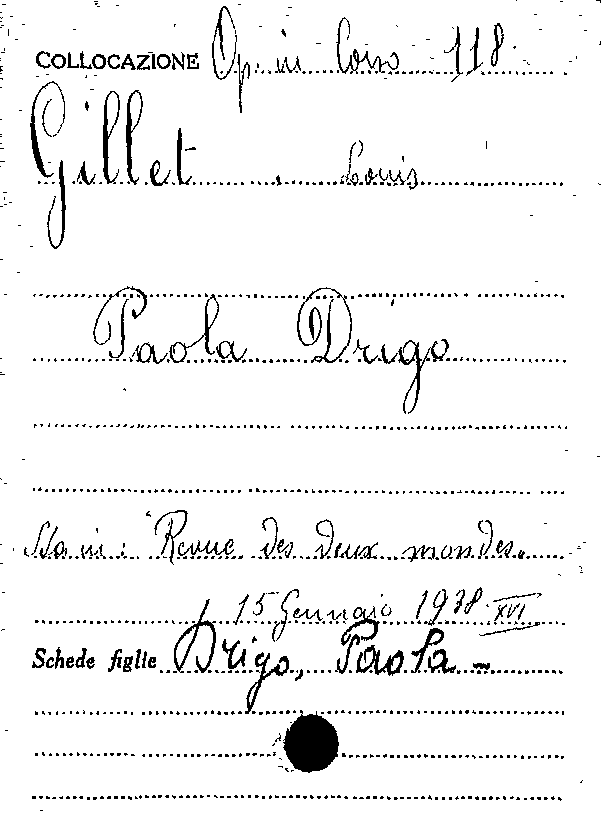 COLLOCAZIONE Op. in Corso 118.
Gillet . Louis
Paola Drigo
Sta in: Revue des deux mondes.
15 Gennaio 1938 XVI
Schede figlie Drigo, Paola -